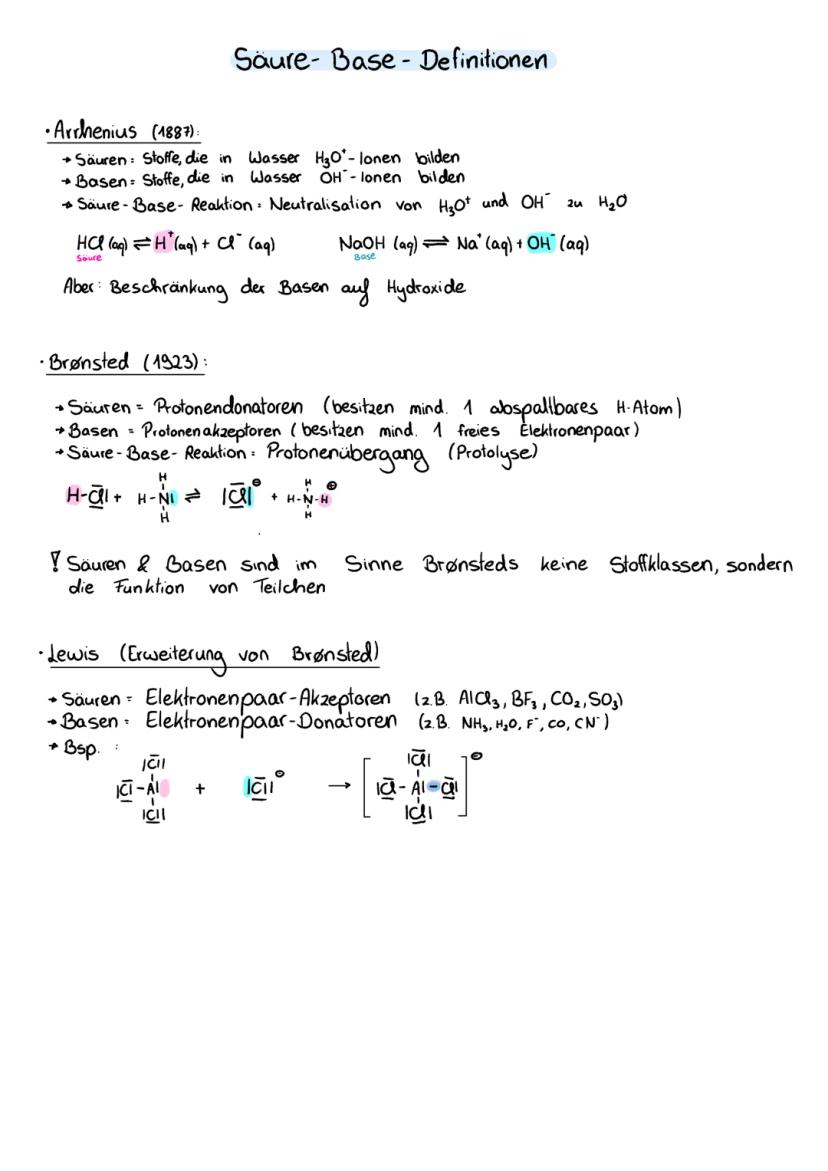 Säure-Base-Definitionen
· Arrhenius (1887):
→ Säuren = Stoffe, die in Wasser H₃O⁺-Ionen bilden
→ Basen = Stoffe, die in Wasser OH⁻-Ionen bilden
→ Säure-Base-Reaktion = Neutralisation von H₃O⁺ und OH⁻ zu H₂O
HCl (aq) ⇌ H⁺(aq) + Cl⁻ (aq) NaOH (aq) ⇌ Na⁺ (aq) + OH⁻ (aq)
Säure Base
Aber: Beschränkung der Basen auf Hydroxide
· Brønsted (1923):
→ Säuren = Protonendonatoren (besitzen mind. 1 abspaltbares H-Atom)
→ Basen = Protonenakzeptoren (besitzen mind. 1 freies Elektronenpaar)
→ Säure-Base-Reaktion = Protonenübergang (Protolyse)
H
H
H-C̲̅l| + H-N| ⇌ |C̲̅l|⊖ + H-N-H⊕
H
H
! Säuren & Basen sind im Sinne Brønsteds keine Stoffklassen, sondern
die Funktion von Teilchen
· Lewis (Erweiterung von Brønsted)
→ Säuren = Elektronenpaar-Akzeptoren (z.B. AlCl₃, BF₃, CO₂, SO₃)
→ Basen = Elektronenpaar-Donatoren (z.B. NH₃, H₂O, F⁻, CO, CN⁻)
→ Bsp. :
|C̅l| |C̅l|
|C̲̅l-Al + |C̲̅l|⊖ → [ |C̲̅l-Al-C̲̅l| ]⊖
|C̲l| |C̲l|